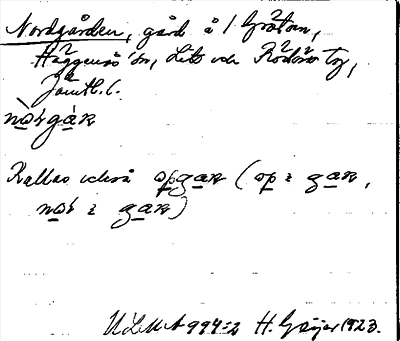 Nordgården, gård å / Gråtan,
Häggenås sn, Lits och Rödöns tg,
Jämtl. l.
nørgaɴ
Kallas också opgaɴ (op i gaɴ,
nør i gaɴ)
ULMA 994:2 H. Geijer 1923.